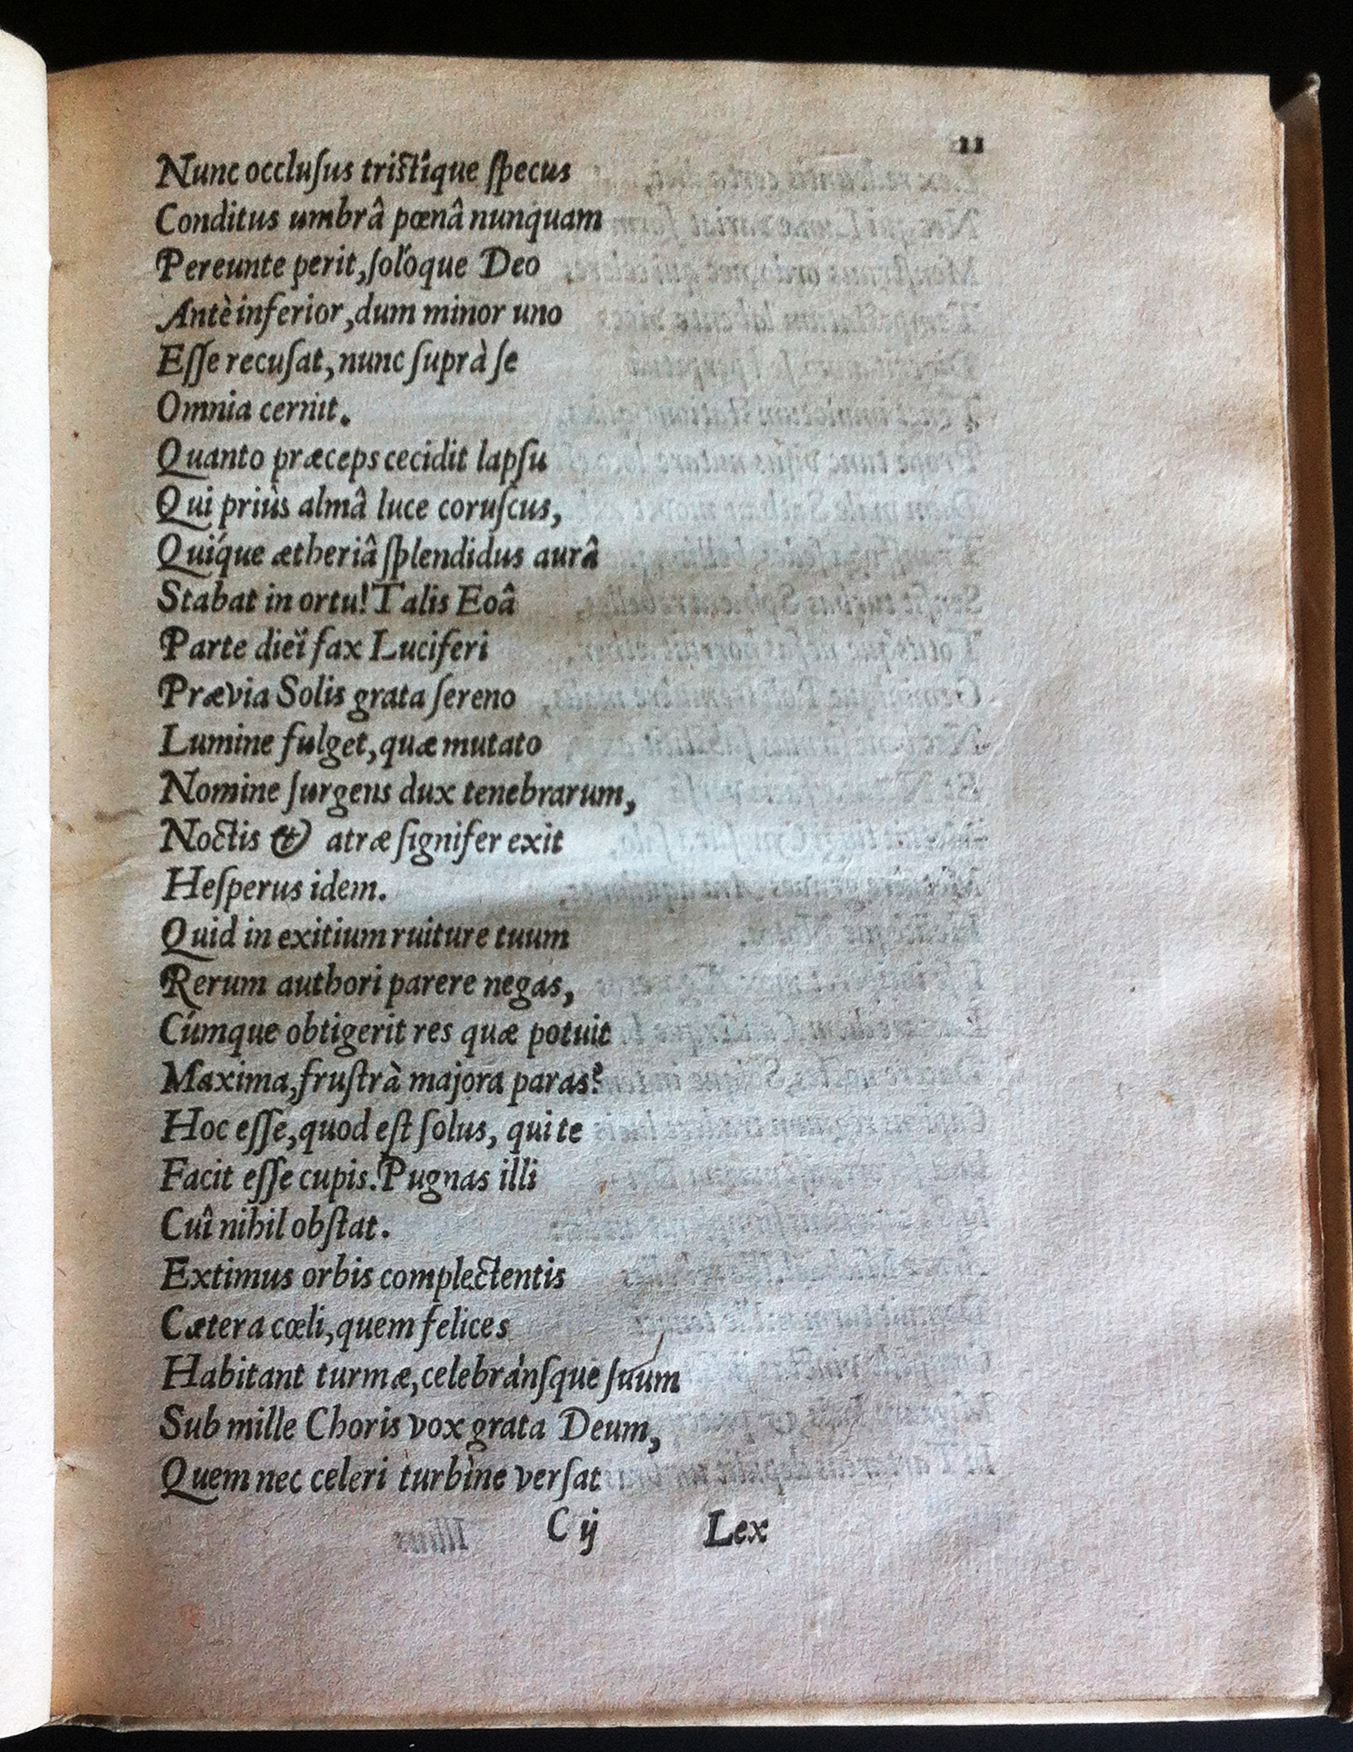 11
Nunc occluſus triſtíque ſpecus
Conditus umbrâ pœnâ nunquam
Pereunte perit, ſolóque Deo
Antè inferior, dum minor uno
Eſſe recuſat, nunc ſuprà ſe
Omnia cernit.
Quanto præceps cecidit lapſu
Qui priùs almâ luce coruſcus,
Quíque ætheriâ ſplendidus aurâ
Stabat in ortu! Talis Eoâ
Parte dieï fax Luciferi
Prævia Solis grata ſereno
Lumine fulget, quæ mutato
Nomine ſurgens dux tenebrarum,
Noctis & atræ ſignifer exit
Heſperus idem.
Quid in exitium ruiture tuum
Rerum authori parere negas,
Cúmque obtigerit res quæ potuit
Maxima, fruſtrà majora paras?
Hoc eſſe, quod eſt ſolus, qui te
Facit eſſe cupis. Pugnas illi
Cuî nihil obſtat.
Extimus orbis complectentis
Cætera cœli, quem felices
Habitant turmæ, celebránſque ſuum
Sub mille Choris vox grata Deum,
Quem nec celeri turbine verſat
C ij Lex